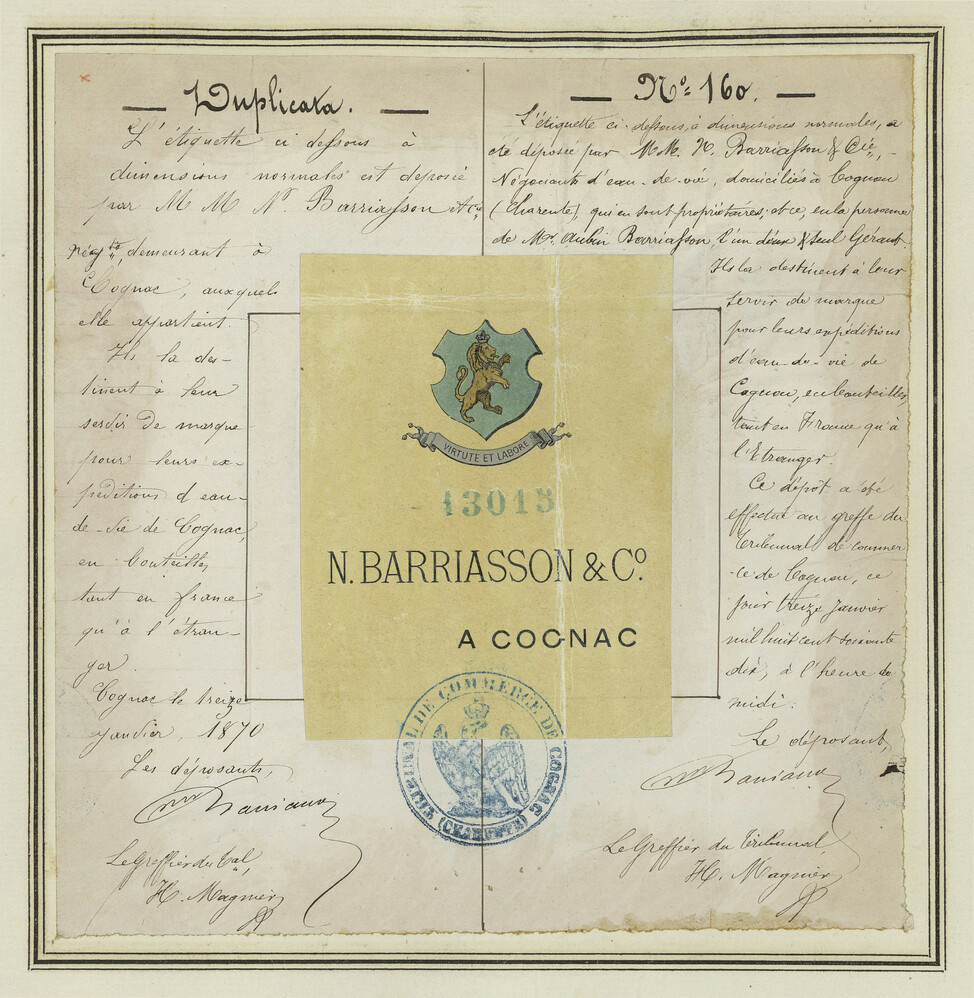 Duplicata.
L'étiquette ci dessous à
dimensions normales est déposée
par M M N. Barriasson & Cie
négts, demeurant à
Cognac, auxquels
elle appartient.
Ils la des-
tinent à leur
servir de marque
pour leurs ex-
péditions d'eau-
de-vie de Cognac,
en bouteilles,
tant en france
qu'à l'étran-
ger.
Cognac le treize
janvier, 1870
Les déposants,
Le Greffier du Tal,
H. Magnier
No 160.
L'étiquette ci-dessous, à dimensions normales, a
été déposée par M.M. N. Barriasson & Cie,
Négociants d'eau-de-vie, domiciliés à Cognac
(Charente), qui en sont propriétaires; et ce, en la personne
de Mr. Aubin Barriasson, l'un d'eux & seul Gérant.
Ils la destinent à leur
servir de marque
pour leurs expéditions
d'eau-de-vie de
Cognac, en bouteilles,
tant en France qu'à
l'Etranger.
Ce dépôt a été
effectué au greffe du
Tribunal de commer-
ce de Cognac, ce
jour treize Janvier
mil huit cent soixante
dix, à l'heure de
midi.
Le déposant,
Le Greffier du Tribunal
H. Magnier
VIRTUTE ET LABORE
13015
N. BARRIASSON & Co.
A COGNAC
TRIBUNAL DE COMMERCE DE COGNAC
(CHARENTE)